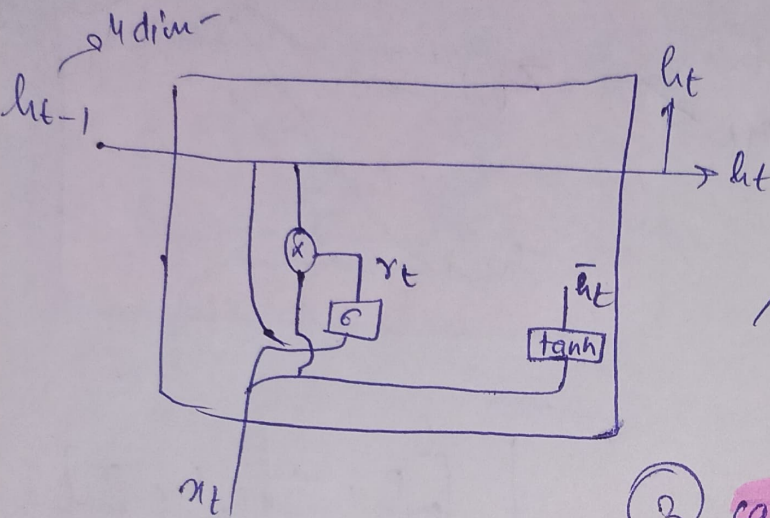 4 dim
ht-1
ht
ht
x
rt
σ
h̄t
tanh
xt
2